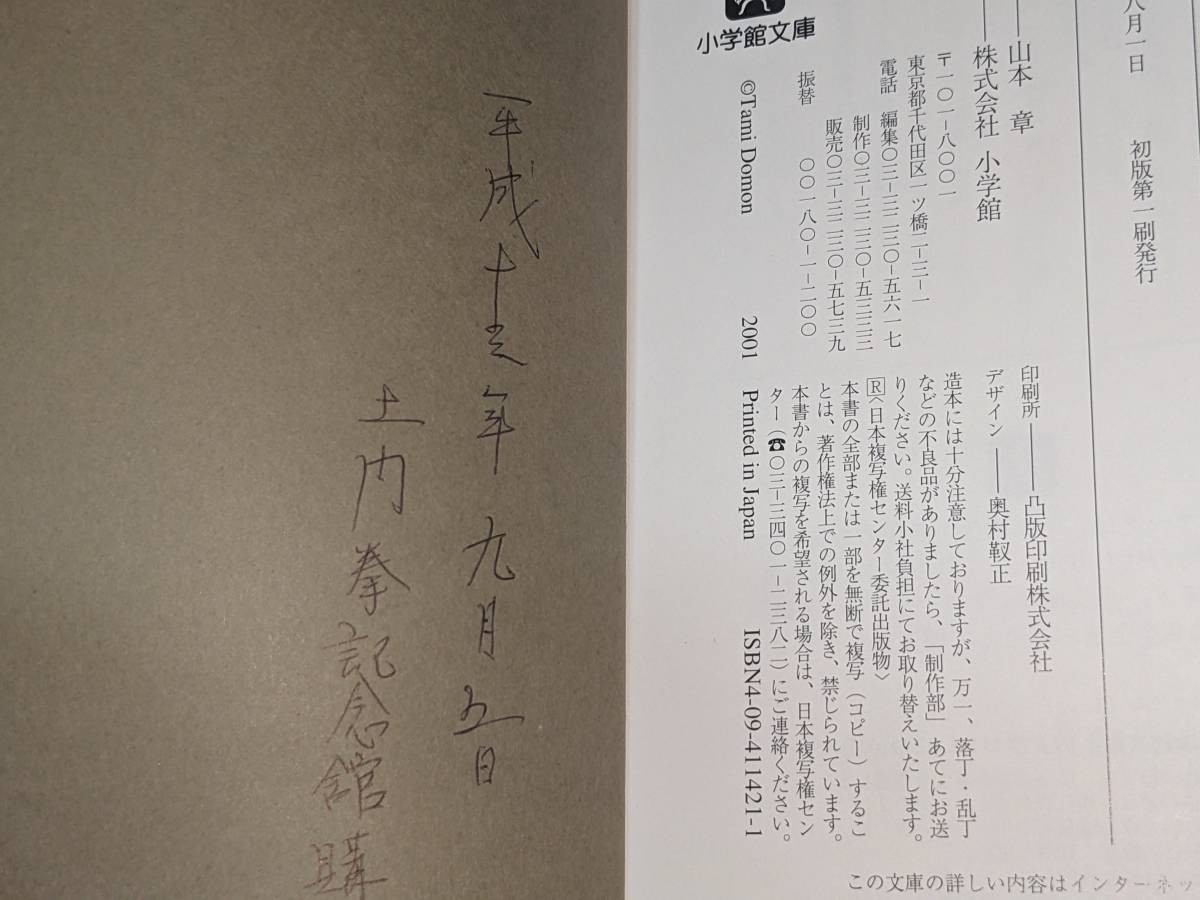 八月一日　初版第一刷発行
山本 章
株式会社 小学館
〒一〇一-八〇〇一
東京都千代田区一ツ橋二-三-一
電話 編集〇三-三二三〇-五六一七
制作〇三-三二三〇-五三三三
販売〇三-三二三〇-五七三九
振替 〇〇一八〇-一-二〇〇
小学館文庫
印刷所――凸版印刷株式会社
デザイン――奥村靫正
造本には十分注意しておりますが、万一、落丁・乱丁
などの不良品がありましたら、「制作部」あてにお送
りください。送料小社負担にてお取り替えいたします。
R〈日本複写権センター委託出版物〉
本書の全部または一部を無断で複写（コピー）するこ
とは、著作権法上での例外を除き、禁じられています。
本書からの複写を希望される場合は、日本複写権セン
ター（☎〇三-三四〇一-二三八二）にご連絡ください。
©Tami Domon 2001 Printed in Japan ISBN4-09-411421-1
この文庫の詳しい内容はインターネッ
平成十三年九月五日
土門拳記念館購